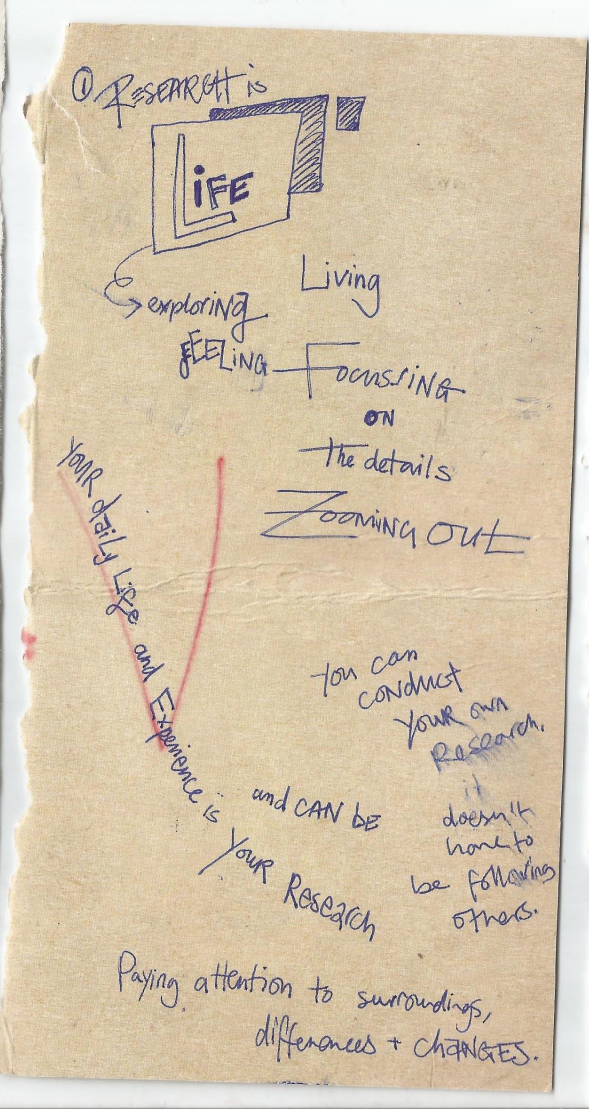 ① RESEARCH is
LiFE
Living
exploriNg
FEELiNG — FocussiNG
ON
The details
ZoomiNG OUt
YOUR daily Life and Experience is
and CAN bE
YouR Research
You can
coNduct
YOUR own
Research.
it
doesn't
have to
be following
others.
Paying attention to surroundings,
differences + ChANGES.